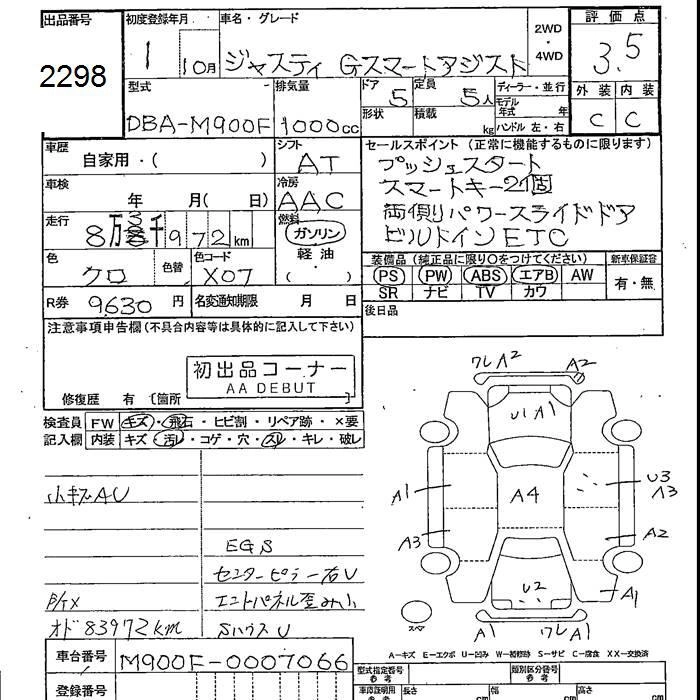 出品番号
2298
初度登録年月
1 10月
車名・グレード
ジャスティ Gスマートアシスト
2WD
・
4WD
評価点
3.5
外装 内装
C C
型式
DBA-M900F
排気量
1000cc
ドア
5
定員
5人
形状
積載
kg
ディーラー・並行
モデル
年式 年
ハンドル 左・右
車歴
自家用・( )
シフト
AT
車検
年 月( 日)
冷房
AAC
走行
8万3千972km
燃料
ガソリン
軽油
( ・ )
色
クロ
色替
色コード
X07
R券 9630 円
名変通知期限 月 日
セールスポイント(正常に機能するものに限ります)
プッシュスタート
スマートキー2個
両側パワースライドドア
ビルドインETC
装備品(純正品に限り〇をつけてください)
PS PW ABS エアB AW
SR ナビ TV カワ
新車保証書
有・無
後日品
注意事項申告欄(不具合内容等は具体的に記入して下さい)
初出品コーナー
AA DEBUT
修復歴 有 〔箇所 〕
検査員
記入欄
FW キズ・飛石・ヒビ割・リペア跡・×要
内装 キズ・汚レ・コゲ・穴・スレ・キレ・破レ
小キズAU
EGS
センターピラー右U
エンドパネル歪み小
SハウスU
オド 83972km
ワレA2
A2
U1 A1
A1
A4
U3
A3
A3
A2
U2
A1
スペア
A1
ワレA1
A-キズ E-エクボ U-凹み W-補修跡 S-サビ C-腐食 XX-交換済
車台番号 M900F-0007066
登録番号
型式指定番号
参考
類別区分番号
参考
車庫証明用
参考
長さ cm
幅 cm
高さ cm